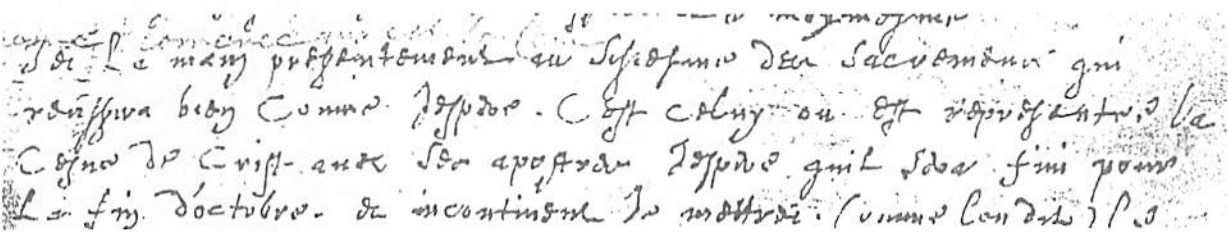 La main presentement au septiesme des Sacremens qui
reussira bien Comme Jespere. C est Celuy ou est represantee la
Cesne de Crist avec Ses apostres Jespere quil Sera fini pour
La fin doctobre. et incontinent Je mettrei (comme lon dit) la